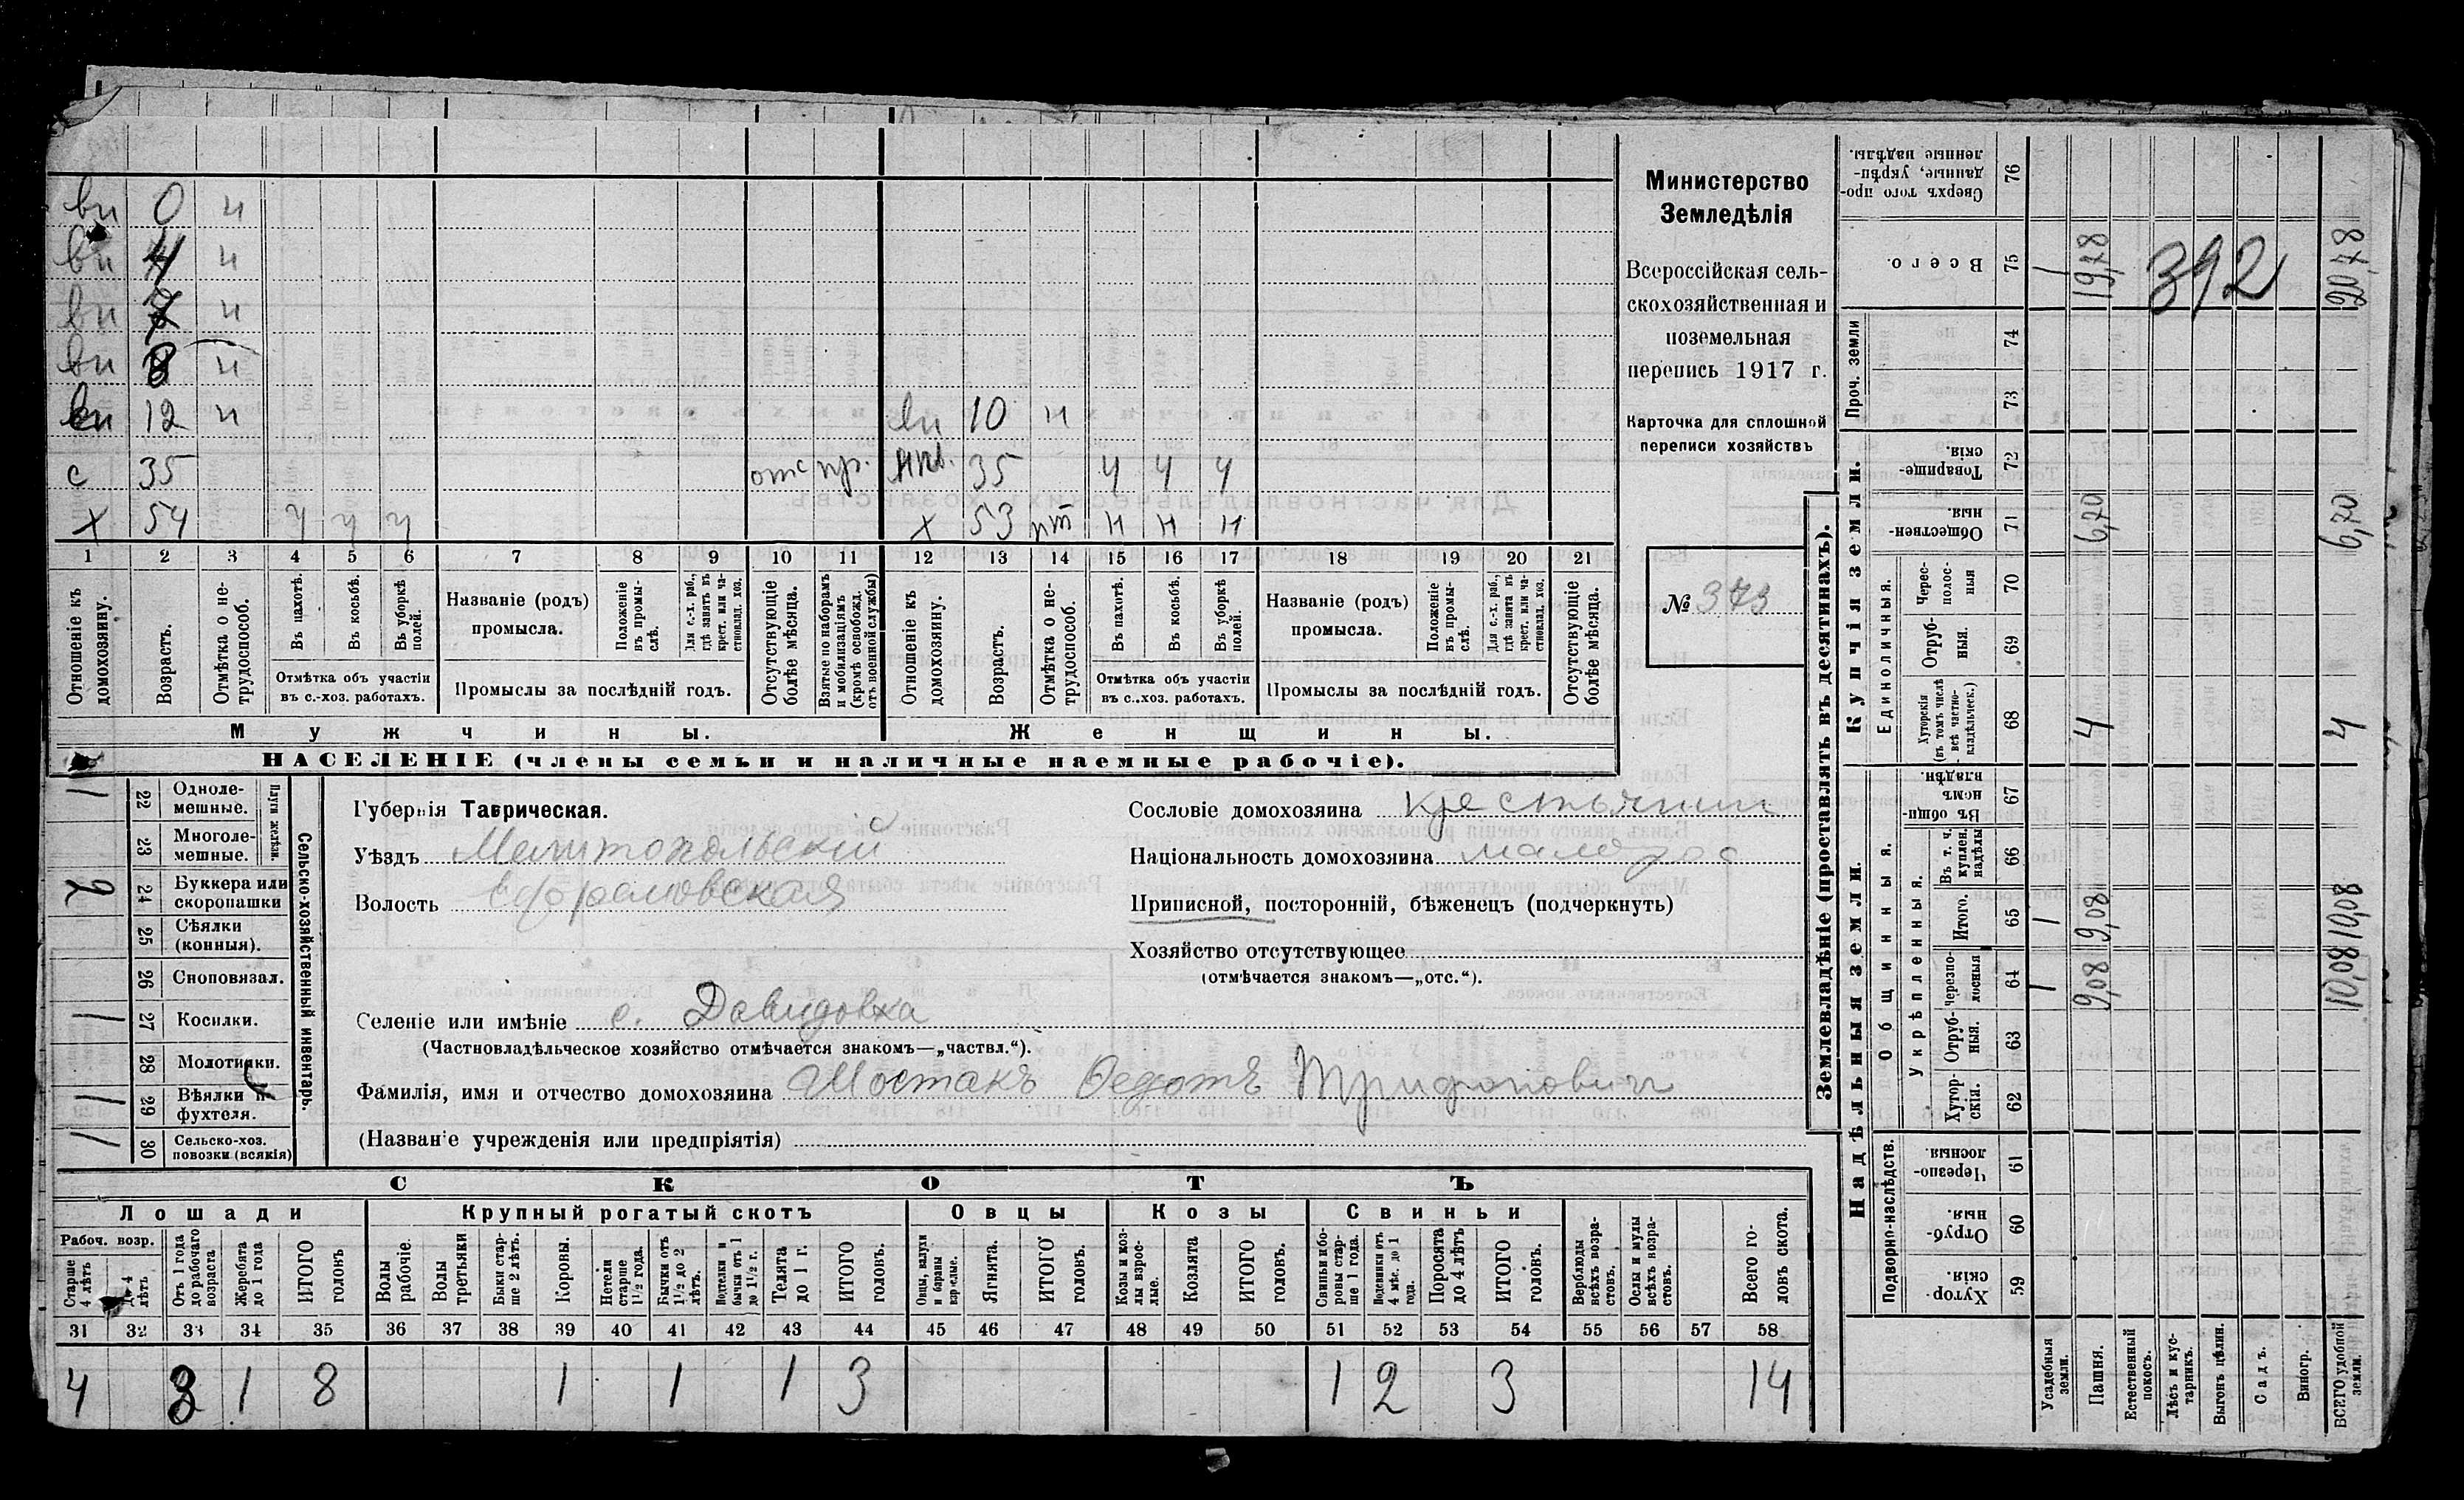 вн 0 н
вн 4 н
вн 7 н
вн 8 н
вн 12 н вн 10 н
с 35 отс пр. нев. 35 ч ч ч
х 54 ч ч ч х 53 пт н н н
1 2 3 4 5 6 7 8 9 10 11 12 13 14 15 16 17 18 19 20 21
Отношеніе къ домохозяину.
Возрастъ.
Отмѣтка о нетрудоспособ.
Въ пахотѣ.
Въ косьбѣ.
Въ уборкѣ полей.
Отмѣтка объ участіи въ с.-хоз. работахъ.
Названіе (родъ) промысла.
Положеніе въ промыслѣ.
Для с.-х. раб., гдѣ занятъ въ крест. или частновлад. хоз.
Промыслы за послѣдній годъ.
Отсутствующіе болѣе мѣсяца.
Взятые по наборамъ и мобилизаціямъ (кромѣ освобожд. отъ военной службы)
Отношеніе къ домохозяину.
Возрастъ.
Отмѣтка о нетрудоспособ.
Въ пахотѣ.
Въ косьбѣ.
Въ уборкѣ полей.
Отмѣтка объ участіи въ с.-хоз. работахъ.
Названіе (родъ) промысла.
Положеніе въ промыслѣ.
Для с.-х. раб., гдѣ занята въ крест. или частновлад. хоз.
Промыслы за послѣдній годъ.
Отсутствующіе болѣе мѣсяца.
Мужчины. Женщины.
НАСЕЛЕНІЕ (члены семьи и наличные наемные рабочіе).
Министерство
Земледѣлія
Всероссійская сель-
скохозяйственная и
поземельная
перепись 1917 г.
Карточка для сплошной
переписи хозяйствъ
№ 373
Сельско-хозяйственный инвентарь.
Плуги желѣзн.
1 22 Одноле-мешные.
23 Многоле-мешные.
2 24 Буккера или скоропашки
25 Сѣялки (конныя).
26 Сноповязал.
1 27 Косилки.
28 Молотилки.
1 29 Вѣялки и фухтеля.
1 30 Сельско-хоз. повозки (всякія)
Губернія Таврическая.
Уѣздъ Мелитопольскій
Волость Ефремовская
Сословіе домохозяина крестьянин
Національность домохозяина малорос
Приписной, посторонній, бѣженецъ (подчеркнуть)
Хозяйство отсутствующее
(отмѣчается знакомъ—„отс.“).
Селеніе или имѣніе с. Давидовка
(Частновладѣльческое хозяйство отмѣчается знакомъ—„частвл.“).
Фамилія, имя и отчество домохозяина Шостакъ Федотъ Трифонович
(Названіе учрежденія или предпріятія)
СКОТЪ
Лошади Крупный рогатый скотъ Овцы Козы Свиньи
Рабоч. возр.
Старше 4 лѣтъ
До 4 лѣтъ
Отъ 1 года до рабочаго возраста
Жеребята до 1 года
ИТОГО головъ
Волы рабочіе.
Волы третьяки
Быки старше 2 лѣтъ.
Коровы.
Нетели старше 1½ года.
Бычки отъ 1½ до 2 лѣтъ.
Подтелки и бычки отъ 1 до 1½ г.
Телята до 1 г.
ИТОГО головъ.
Овцы, валухи и бараны взрослые.
Ягнята.
ИТОГО головъ.
Козы и козлы взрослые.
Козлята
ИТОГО головъ.
Свиньи и боровы старше 1 года.
Подсвинки отъ 4 мѣс. до 1 года.
Поросята до 4 лѣтъ
ИТОГО головъ.
Верблюды всѣхъ возрастовъ.
Ослы и мулы всѣхъ возрастовъ.
Всего головъ скота.
31 32 33 34 35 36 37 38 39 40 41 42 43 44 45 46 47 48 49 50 51 52 53 54 55 56 57 58
4 3 1 8 1 1 1 3 1 2 3 14
Землевладѣніе (проставлять въ десятинахъ).
Сверхъ того проданные, укрѣпленные надѣлы. 76
Всего. 75 1 19,78 20,78
392
Проч. земли 74
73
Купчія земли.
Товарищескія 72
Общественныя 71 6,70 6,70
Единоличныя.
Чрес-полос-ныя 70
Отруб-ныя. 69
Хуторскія (въ томъ числѣ всѣ частновладѣльческ.) 68 4 4
Надѣльныя земли.
Общинныя.
Въ общинномъ владѣн. 67
Укрѣпленныя.
Въ т. ч. куплен. надѣлы 66
Итого. 65 1 9,08 10,08
черезполосныя 64 1 9,08 10,08
Отруб-ныя. 63
Хутор-скія. 62
Подворно-наслѣдств.
Черезполосныя. 61
Отруб-ныя. 60
Хутор-скія 59
Усадебныя земли.
Пашня.
Естественный покосъ.
Лѣсъ и кустарникъ.
Выгонъ цѣлин.
Садъ.
Виногр.
ВСЕГО удобной земли.